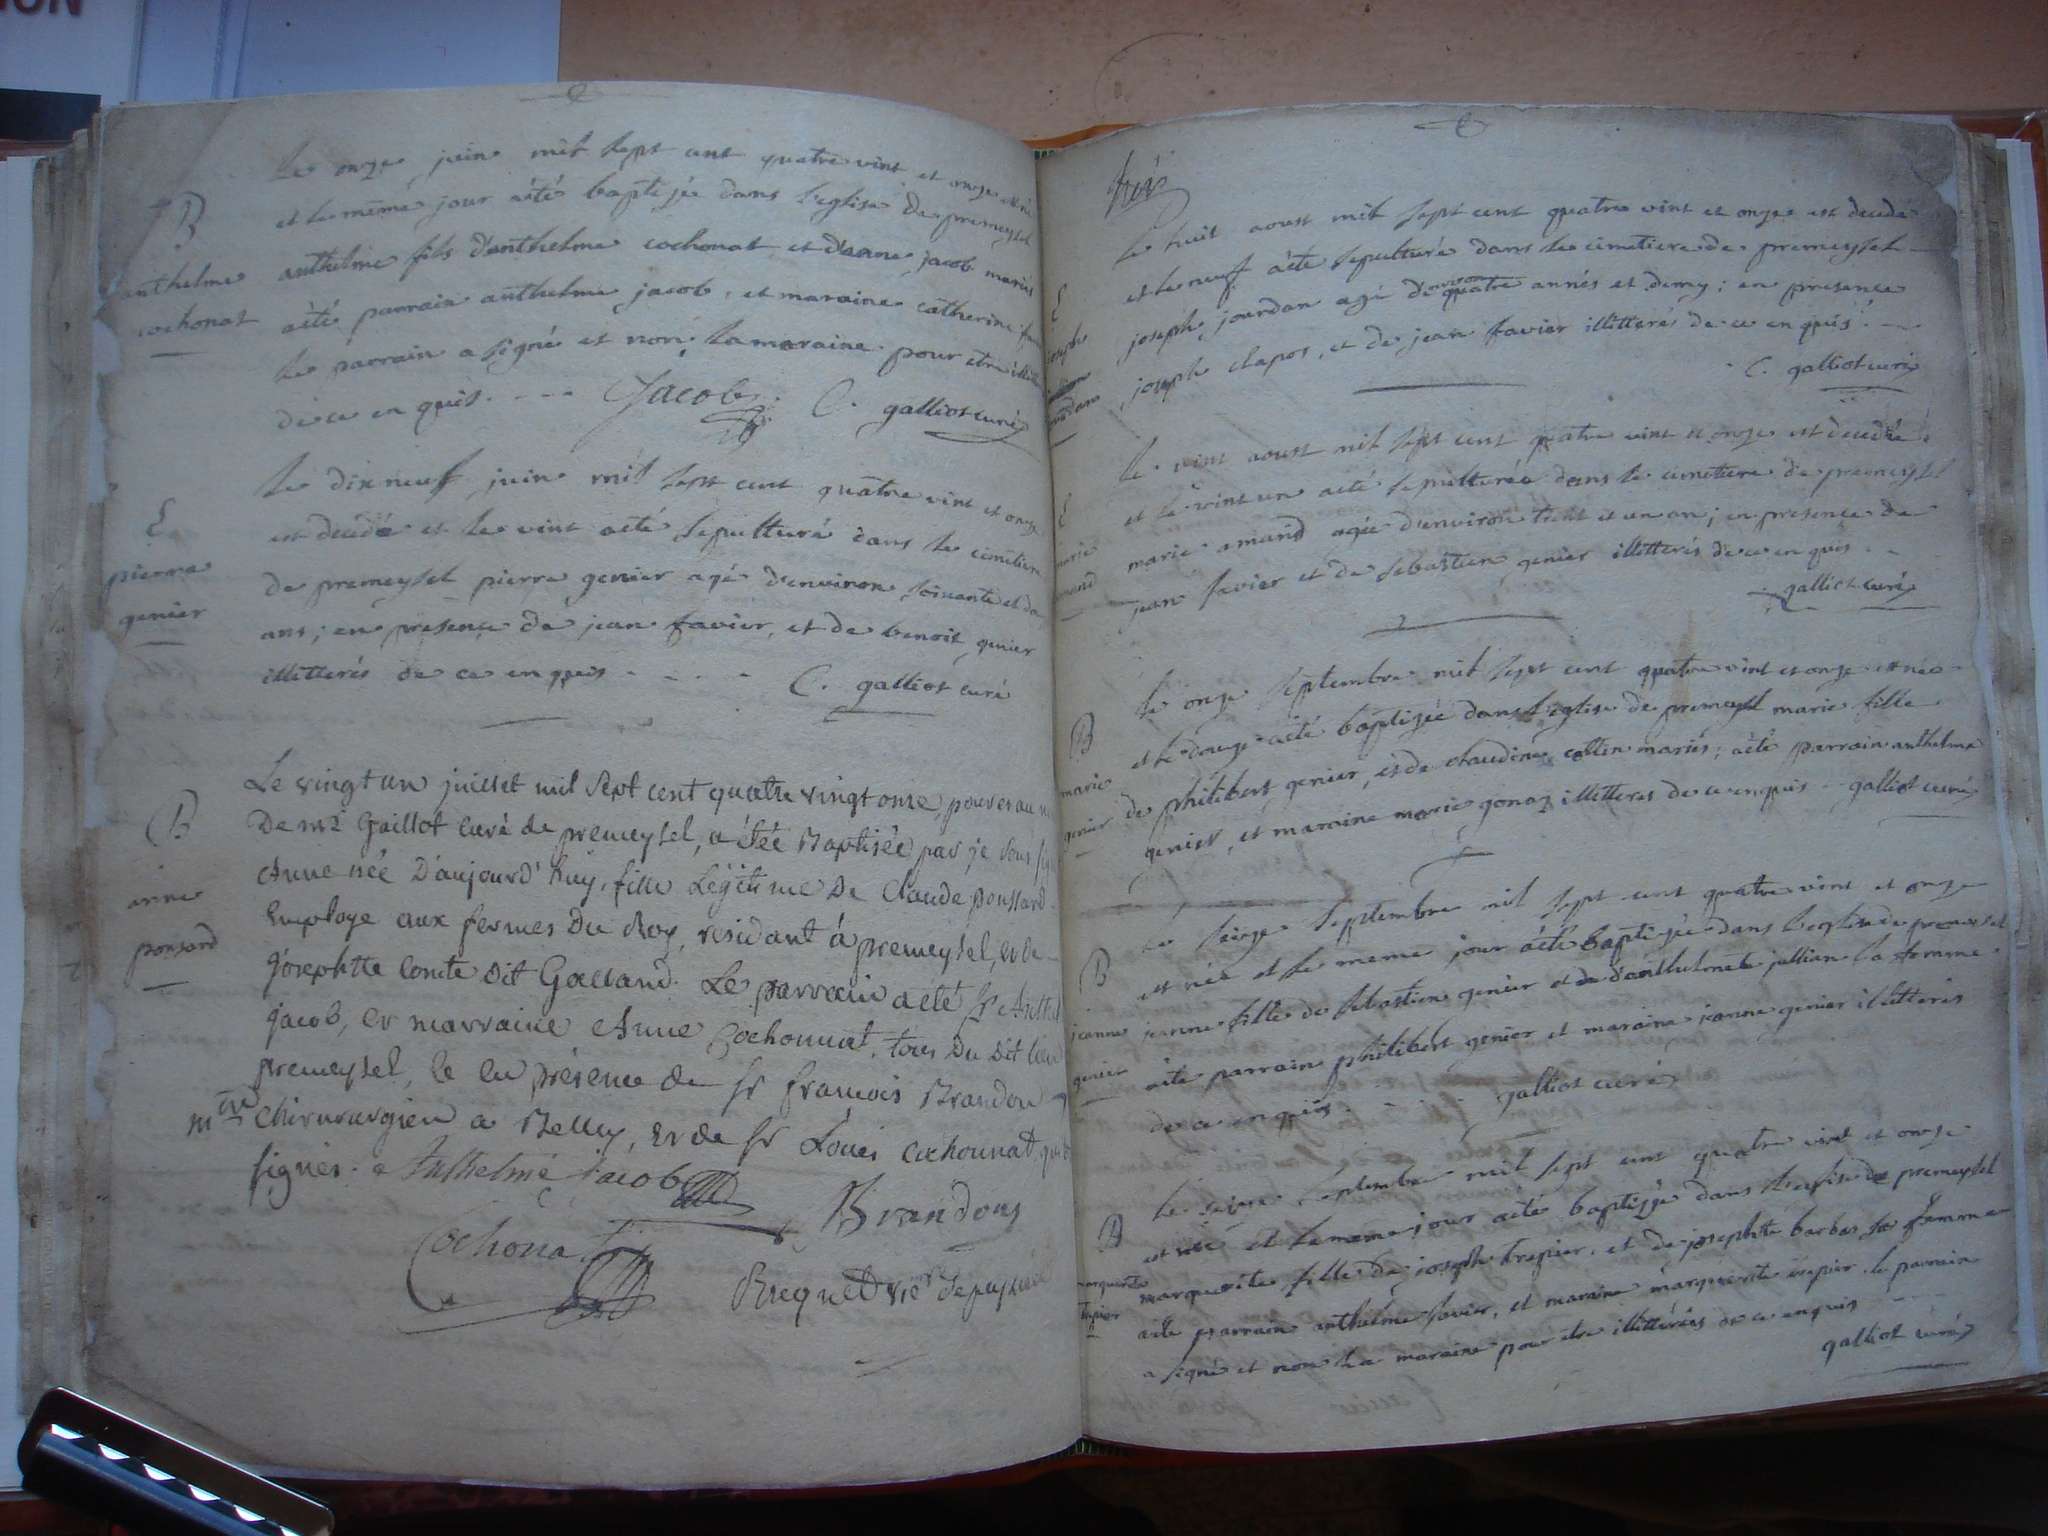 B
anthelme
cochonat
le onze juin mil sept cent quatre vint et onze est né
et le même jour aété baptisée dans l'eglise de premeysel
anthelme fils d'anthelme cochonat et d'anne jacob mariés
aété parrain anthelme jacob, et maraine catherine
le parrain a signé et non la maraine pour etre
de ce enquis. Jacob C. galliot curé
E
pierre
genier
le dixneuf juin mil sept cent quatre vint et onze
est decedé et le vint aété sepulturé dans le cimetiere
de premeysel pierre genier agé d'environ soixante et
ans; en presence de jean favier, et de benoit genier
illitterés de ce enquis C. galliot curé
B
anne
ponsard
Le vingt un juillet mil sept cent quatre vingt onze, pour
De mr Gaillot curé de premeysel, a étée Baptisée par je sous
Anne née D'aujourd'huy, fille Légitime De Claude ponsard
Employe aux fermes Du Roy, residant á premeysel, et de
Josephtte Comte dit Galland. Le parrain a eté sr
Jacob, et marraine Anne Cochonnat, tous Du Dit lieu
premeysel, le en présence de sr francois Brandon
mtre chirurgien a Belley, et de sr Louis Cochonnat,
signés. Anthelme jacob
Brandons
Cochonat
Becquet
favier
E
joseph
jourdan
le huit aoust mil sept cent quatre vint et onze est decedé
et le neuf aété sepulturé dans le cimetiere de premeysel
joseph jourdan agé d'environ quatre annés et demy; en presence
joseph clapos, et de jean favier illitterés de ce enquis.
C. galliot curé
E
marie
amand
le vint aoust mil sept cent quatre vint et onze est decedée
et le vint un aété sepulturée dans le cimetiere de premeysel
marie amand agée d'environ trent et un an; en presence de
jean favier et de sebastien genier illitterés de ce enquis.
galliot curé
B
marie
genier
le onze septembre mil sept cent quatre vint et onze est née
et le douze aété baptizée dans l'eglise de premeysel marie fille
de philibert genier, et de claudine collin mariés; aété parrain anthelme
genier, et maraine marie gonaz illitteres de ce enquis galliot curé
B
jeanne
genier
le seize septembre mil sept cent quatre vint et onze
est née et le meme jour aété baptizée dans l'eglise de premeysel
jeanne fille de sebastien genier et de d'anthelmete jullian sa femme
aété parrain philibert genier et maraine jeanne genier illitterés
de ce enquis. galliot curé
B
marguerite
trepier
le seize septembre mil sept cent quatre vint et onze
est née et le meme jour aété baptizée dans l'eglise de premeysel
marguerite fille de joseph trepier, et de josephte barbas sa femme
aété parrain anthelme favier, et maraine marguerite trepier le parrain
a signé et non la maraine pour etre illitterées de ce enquis
galliot curé